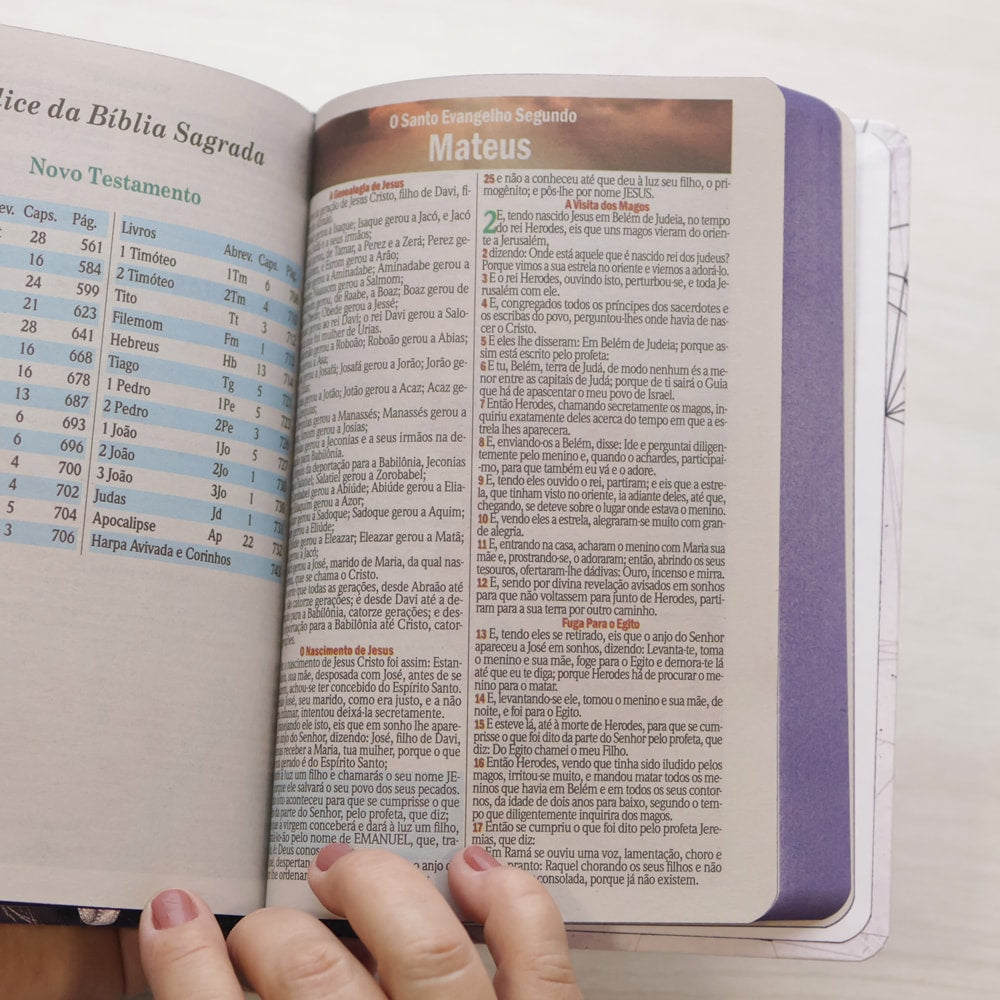 dice da Bíblia Sagrada
Novo Testamento
Caps. Pág.
28 561
16 584
24 599
21 623
28 641
16 668
16 678
13 687
6 693
6 696
4 700
4 702
5 704
3 706
Livros Abrev. Caps.
1 Timóteo 1Tm 6
2 Timóteo 2Tm 4
Tito Tt 3
Filemom Fm 1
Hebreus Hb 13
Tiago Tg 5
1 Pedro 1Pe 5
2 Pedro 2Pe 3
1 João 1Jo 5
2 João 2Jo 1
3 João 3Jo 1
Judas Jd 1
Apocalipse Ap 22
Harpa Avivada e Corinhos
O Santo Evangelho Segundo
Mateus
A Genealogia de Jesus
geração de Jesus Cristo, filho de Davi, fi-
gerou a Isaque; Isaque gerou a Jacó, e Jacó
a seus irmãos;
de Tamar, a Perez e a Zerá; Perez ge-
e Esrom gerou a Arão;
gerou a Aminadabe; Aminadabe gerou a
Naassom gerou a Salmom;
gerou, de Raabe, a Boaz; Boaz gerou de
Obede gerou a Jessé;
gerou ao rei Davi; o rei Davi gerou a Salo-
foi mulher de Urias.
gerou a Roboão; Roboão gerou a Abias;
a Asa;
gerou a Josafá; Josafá gerou a Jorão; Jorão ge-
gerou a Jotão; Jotão gerou a Acaz; Acaz ge-
gerou a Manassés; Manassés gerou a
Amom gerou a Josias;
gerou a Jeconias e a seus irmãos na de-
para Babilônia.
da deportação para a Babilônia, Jeconias
Salatiel gerou a Zorobabel;
gerou a Abiúde; Abiúde gerou a Elia-
gerou a Azor;
gerou a Sadoque; Sadoque gerou a Aquim;
gerou a Eliúde;
gerou a Eleazar; Eleazar gerou a Matã;
a Jacó;
gerou a José, marido de Maria, da qual nas-
que se chama o Cristo.
que todas as gerações, desde Abraão até
catorze gerações; e desde Davi até a de-
para a Babilônia, catorze gerações; e des-
deportação para a Babilônia até Cristo, cator-
O Nascimento de Jesus
nascimento de Jesus Cristo foi assim: Estan-
sua mãe, desposada com José, antes de se
achou-se ter concebido do Espírito Santo.
José, seu marido, como era justo, e a não
intentou deixá-la secretamente.
ele isto, eis que em sonho lhe apare-
anjo do Senhor, dizendo: José, filho de Davi,
receber a Maria, tua mulher, porque o que
gerado é do Espírito Santo;
à luz um filho e chamarás o seu nome JE-
porque ele salvará o seu povo dos seus pecados.
isto aconteceu para que se cumprisse o que
da parte do Senhor, pelo profeta, que diz;
a virgem conceberá e dará à luz um filho,
pelo nome de EMANUEL, que, tra-
é: Deus
o anjo
25 e não a conheceu até que deu à luz seu filho, o pri-
mogênito; e pôs-lhe por nome JESUS.
A Visita dos Magos
2 E, tendo nascido Jesus em Belém de Judeia, no tempo
do rei Herodes, eis que uns magos vieram do orien-
te a Jerusalém,
2 dizendo: Onde está aquele que é nascido rei dos judeus?
Porque vimos a sua estrela no oriente e viemos a adorá-lo.
3 E o rei Herodes, ouvindo isto, perturbou-se, e toda Je-
rusalém com ele.
4 E, congregados todos os príncipes dos sacerdotes e
os escribas do povo, perguntou-lhes onde havia de nas-
cer o Cristo.
5 E eles lhe disseram: Em Belém de Judeia; porque as-
sim está escrito pelo profeta:
6 E tu, Belém, terra de Judá, de modo nenhum és a me-
nor entre as capitais de Judá; porque de ti sairá o Guia
que há de apascentar o meu povo de Israel.
7 Então Herodes, chamando secretamente os magos, in-
quiriu exatamente deles acerca do tempo em que a es-
trela lhes aparecera.
8 E, enviando-os a Belém, disse: Ide e perguntai diligen-
temente pelo menino e, quando o achardes, participai-
-mo, para que também eu vá e o adore.
9 E, tendo eles ouvido o rei, partiram; e eis que a estre-
la, que tinham visto no oriente, ia adiante deles, até que,
chegando, se deteve sobre o lugar onde estava o menino.
10 E, vendo eles a estrela, alegraram-se muito com gran-
de alegria.
11 E, entrando na casa, acharam o menino com Maria sua
mãe e, prostrando-se, o adoraram; então, abrindo os seus
tesouros, ofertaram-lhe dádivas: Ouro, incenso e mirra.
12 E, sendo por divina revelação avisados em sonhos
para que não voltassem para junto de Herodes, parti-
ram para a sua terra por outro caminho.
Fuga Para o Egito
13 E, tendo eles se retirado, eis que o anjo do Senhor
apareceu a José em sonhos, dizendo: Levanta-te, toma
o menino e sua mãe, foge para o Egito e demora-te lá
até que eu te diga; porque Herodes há de procurar o me-
nino para o matar.
14 E, levantando-se ele, tomou o menino e sua mãe, de
noite, e foi para o Egito.
15 E esteve lá, até à morte de Herodes, para que se cum-
prisse o que foi dito da parte do Senhor pelo profeta, que
diz: Do Egito chamei o meu Filho.
16 Então Herodes, vendo que tinha sido iludido pelos
magos, irritou-se muito, e mandou matar todos os me-
ninos que havia em Belém e em todos os seus contor-
nos, da idade de dois anos para baixo, segundo o tem-
po que diligentemente inquirira dos magos.
17 Então se cumpriu o que foi dito pelo profeta Jere-
mias, que diz:
Em Ramá se ouviu uma voz, lamentação, choro e
pranto: Raquel chorando os seus filhos e não
consolada, porque já não existem.